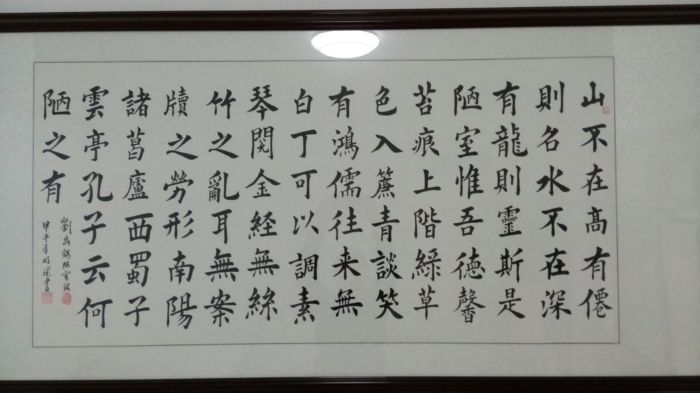 山不在高有僊
則名水不在深
有龍則靈斯是
陋室惟吾德馨
苔痕上階綠草
色入簾青談笑
有鴻儒往来無
白丁可以調素
琴閱金経無絲
竹之亂耳無案
牘之勞形南陽
諸葛廬西蜀子
雲亭孔子云何
陋之有
劉禹錫陋室銘
甲午年書